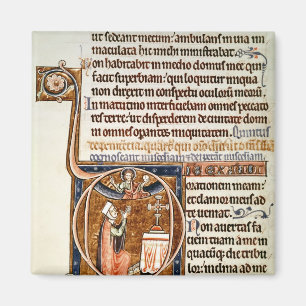 ut sedeant mecum: ambulans in uia in
maculata hic michi ministrabat.
Non habitabit in medio domus mee
qui facit superbiam: qui loquitur iniqua
non direxit in conspectu oculorum meorum.
In matutino interficiebam omnes peccato
res terre: ut disperderem de ciuitate
domini omnes operantes iniquitatem. Quintus
de penitentia.
exaudi
orationem meam:
et clamor meus ad
te ueniat.
Non auertas fa
ciem tuam a me:
in quacumque die tribu
lor inclina ad me